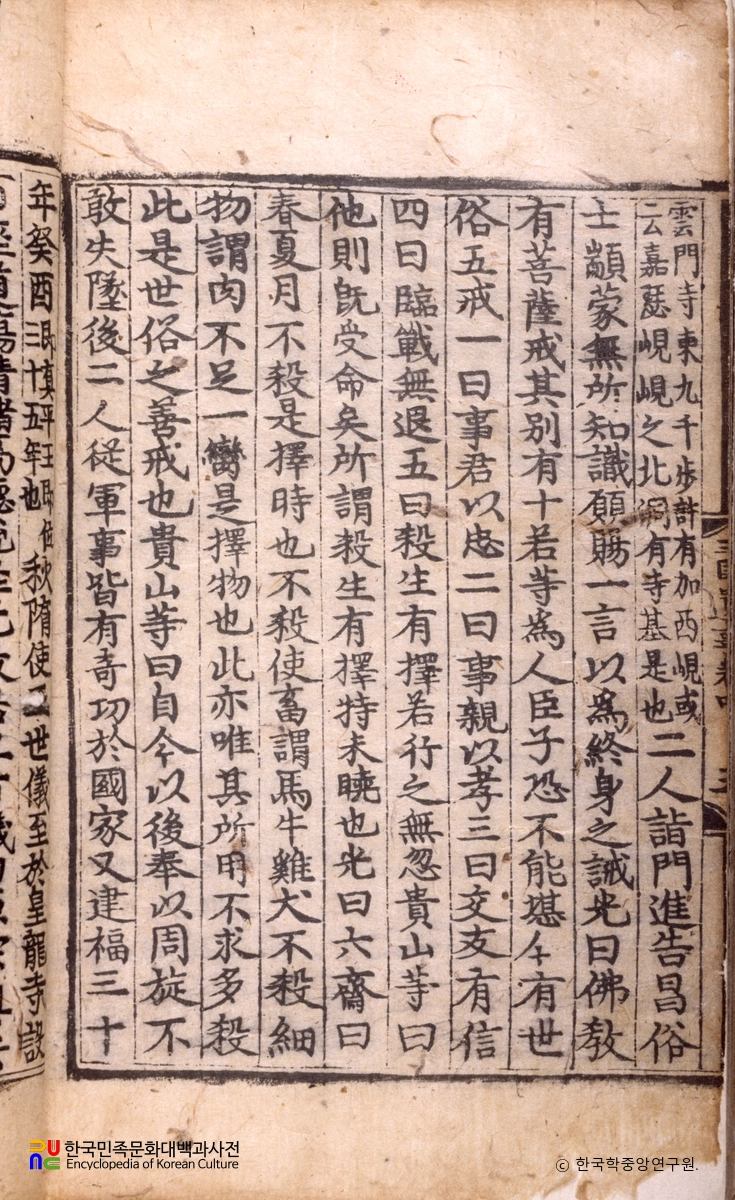 雲門寺東九千步許有加西峴或
云嘉瑟峴峴之北洞有寺基是也二人詣門進告曰俗
士顓蒙無所知識願賜一言以爲終身之誡光曰佛教
有菩薩戒其別有十若等爲人臣子恐不能堪今有世
俗五戒一曰事君以忠二曰事親以孝三曰交友有信
四曰臨戰無退五曰殺生有擇若行之無忽貴山等曰
他則旣受命矣所謂殺生有擇特未曉也光曰六齋日
春夏月不殺是擇時也不殺使畜謂馬牛雞犬不殺細
物謂肉不足一臠是擇物也此亦唯其所用不求多殺
此是世俗之善戒也貴山等曰自今以後奉以周旋不
敢失墜後二人從軍事皆有奇功於國家又建福三十
年癸酉
卽眞平王卽位
三十五年也
秋隋使王世儀至於皇龍寺設
한국민족문화대백과사전
Encyclopedia of Korean Culture
© 한국학중앙연구원.